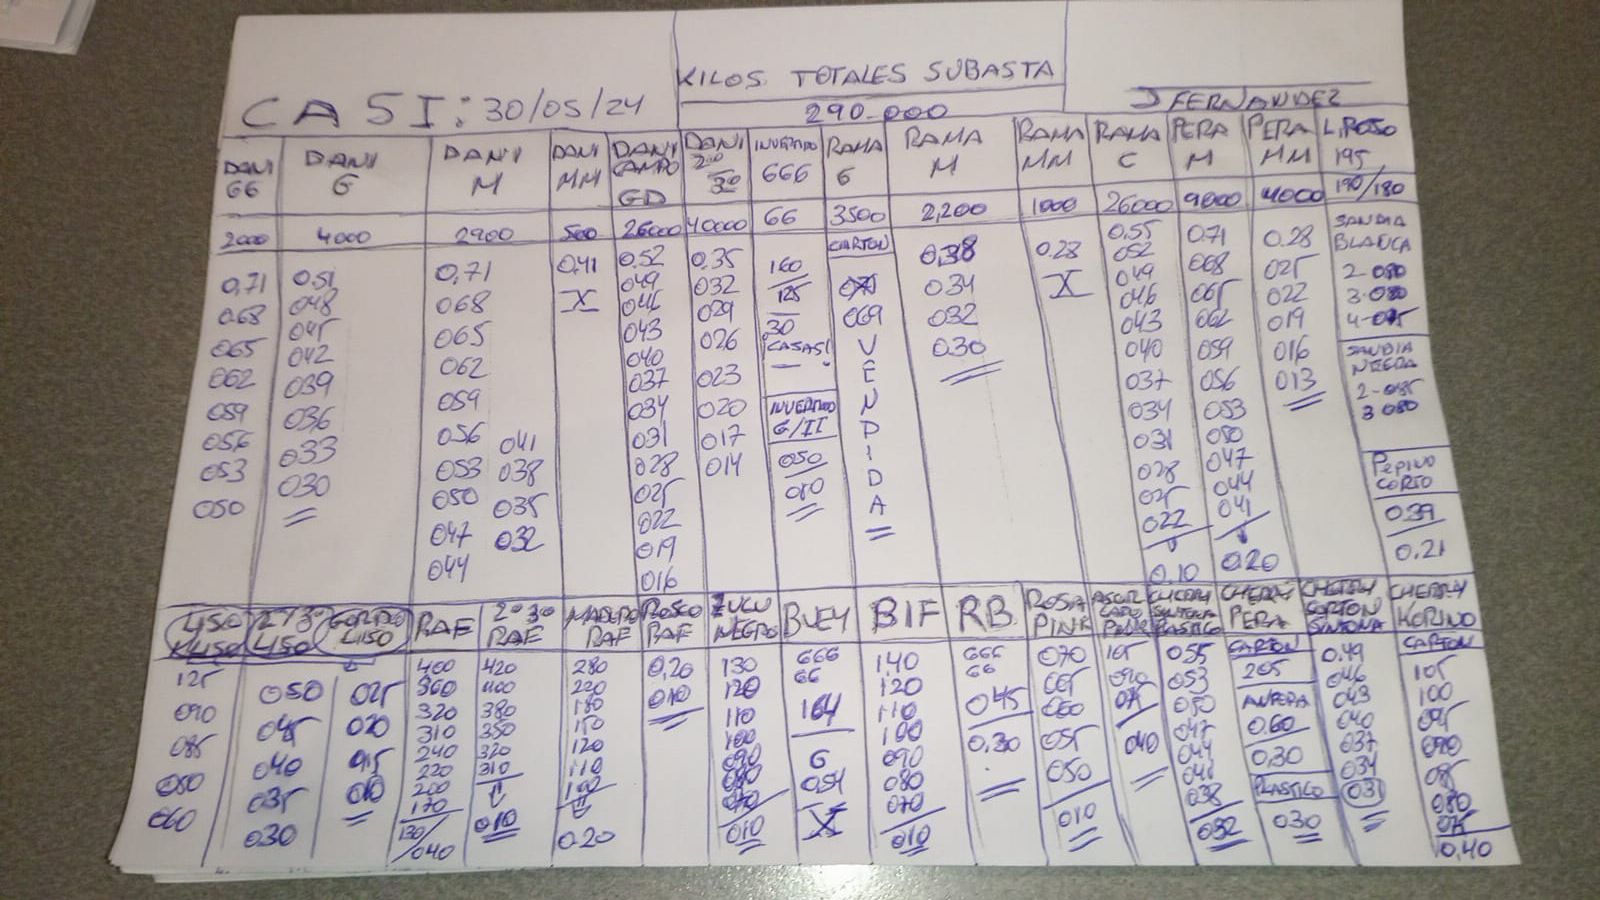 KILOS TOTALES SUBASTA
CASI: 30/05/24
290-000
J FERNANDEZ
DANI GG
2000
0,71
068
065
062
059
056
053
050
DANI G
4000
0.51
048
045
042
039
036
033
030
DANI M
2900
0,71
068
065
062
059
056
053
050
047
044
041
038
035
032
DANI MM
500
0.41
X
DANI CAMPO GD
26000
0.52
049
046
043
040
037
034
031
028
025
022
019
016
DANI 2º 3º
40000
0.35
032
029
026
023
020
017
014
INVERTIDO 666
66
160
125
30
¡CASAS!
INVERTIDO G/II
050
010
RAMA G
3500
CARTON
071
069
VENDIDA
RAMA M
2,200
0,38
034
032
030
RAMA MM
1000
0.28
X
RAMA C
26000
0.55
052
049
046
043
040
037
034
031
028
025
022
0.10
PERA M
9000
0.71
068
065
062
059
056
053
050
047
044
041
0.20
PERA MM
4000
0.28
025
022
019
016
013
L.ROSO
195
190/180
SANDIA BLANCA
2-080
3-080
4-075
SANDIA NEGRA
2-085
3 080
PEPINO CORTO
0.39
0.21
LISO
125
090
085
080
060
2º/3º LISO
050
045
040
035
030
GORDO LISO
025
020
015
010
RAF
400
360
320
310
240
220
200
170
130/040
2º 3º RAF
420
400
380
350
320
310
010
MADURO RAF
280
220
180
150
120
110
100
0.20
ROSCO RAF
0,20
010
ZULU NEGRO
130
120
110
100
090
080
070
010
BUEY
666
66
164
G
054
X
BIF
1,40
120
110
100
090
080
070
010
RB
666
66
045
0.30
ROSA PINK
070
065
060
055
050
010
PINK
105
090
075
040
CHERRY SINTONA PLASTICO
055
053
050
047
044
041
038
032
CHERRY PERA
CARTON
205
ANTERA
0.60
0,30
PLASTICO
030
CHERRY CORTON SINTONA
0.49
046
043
040
037
034
031
CHERRY KORINO
CARTON
105
100
095
090
085
080
075
0,40